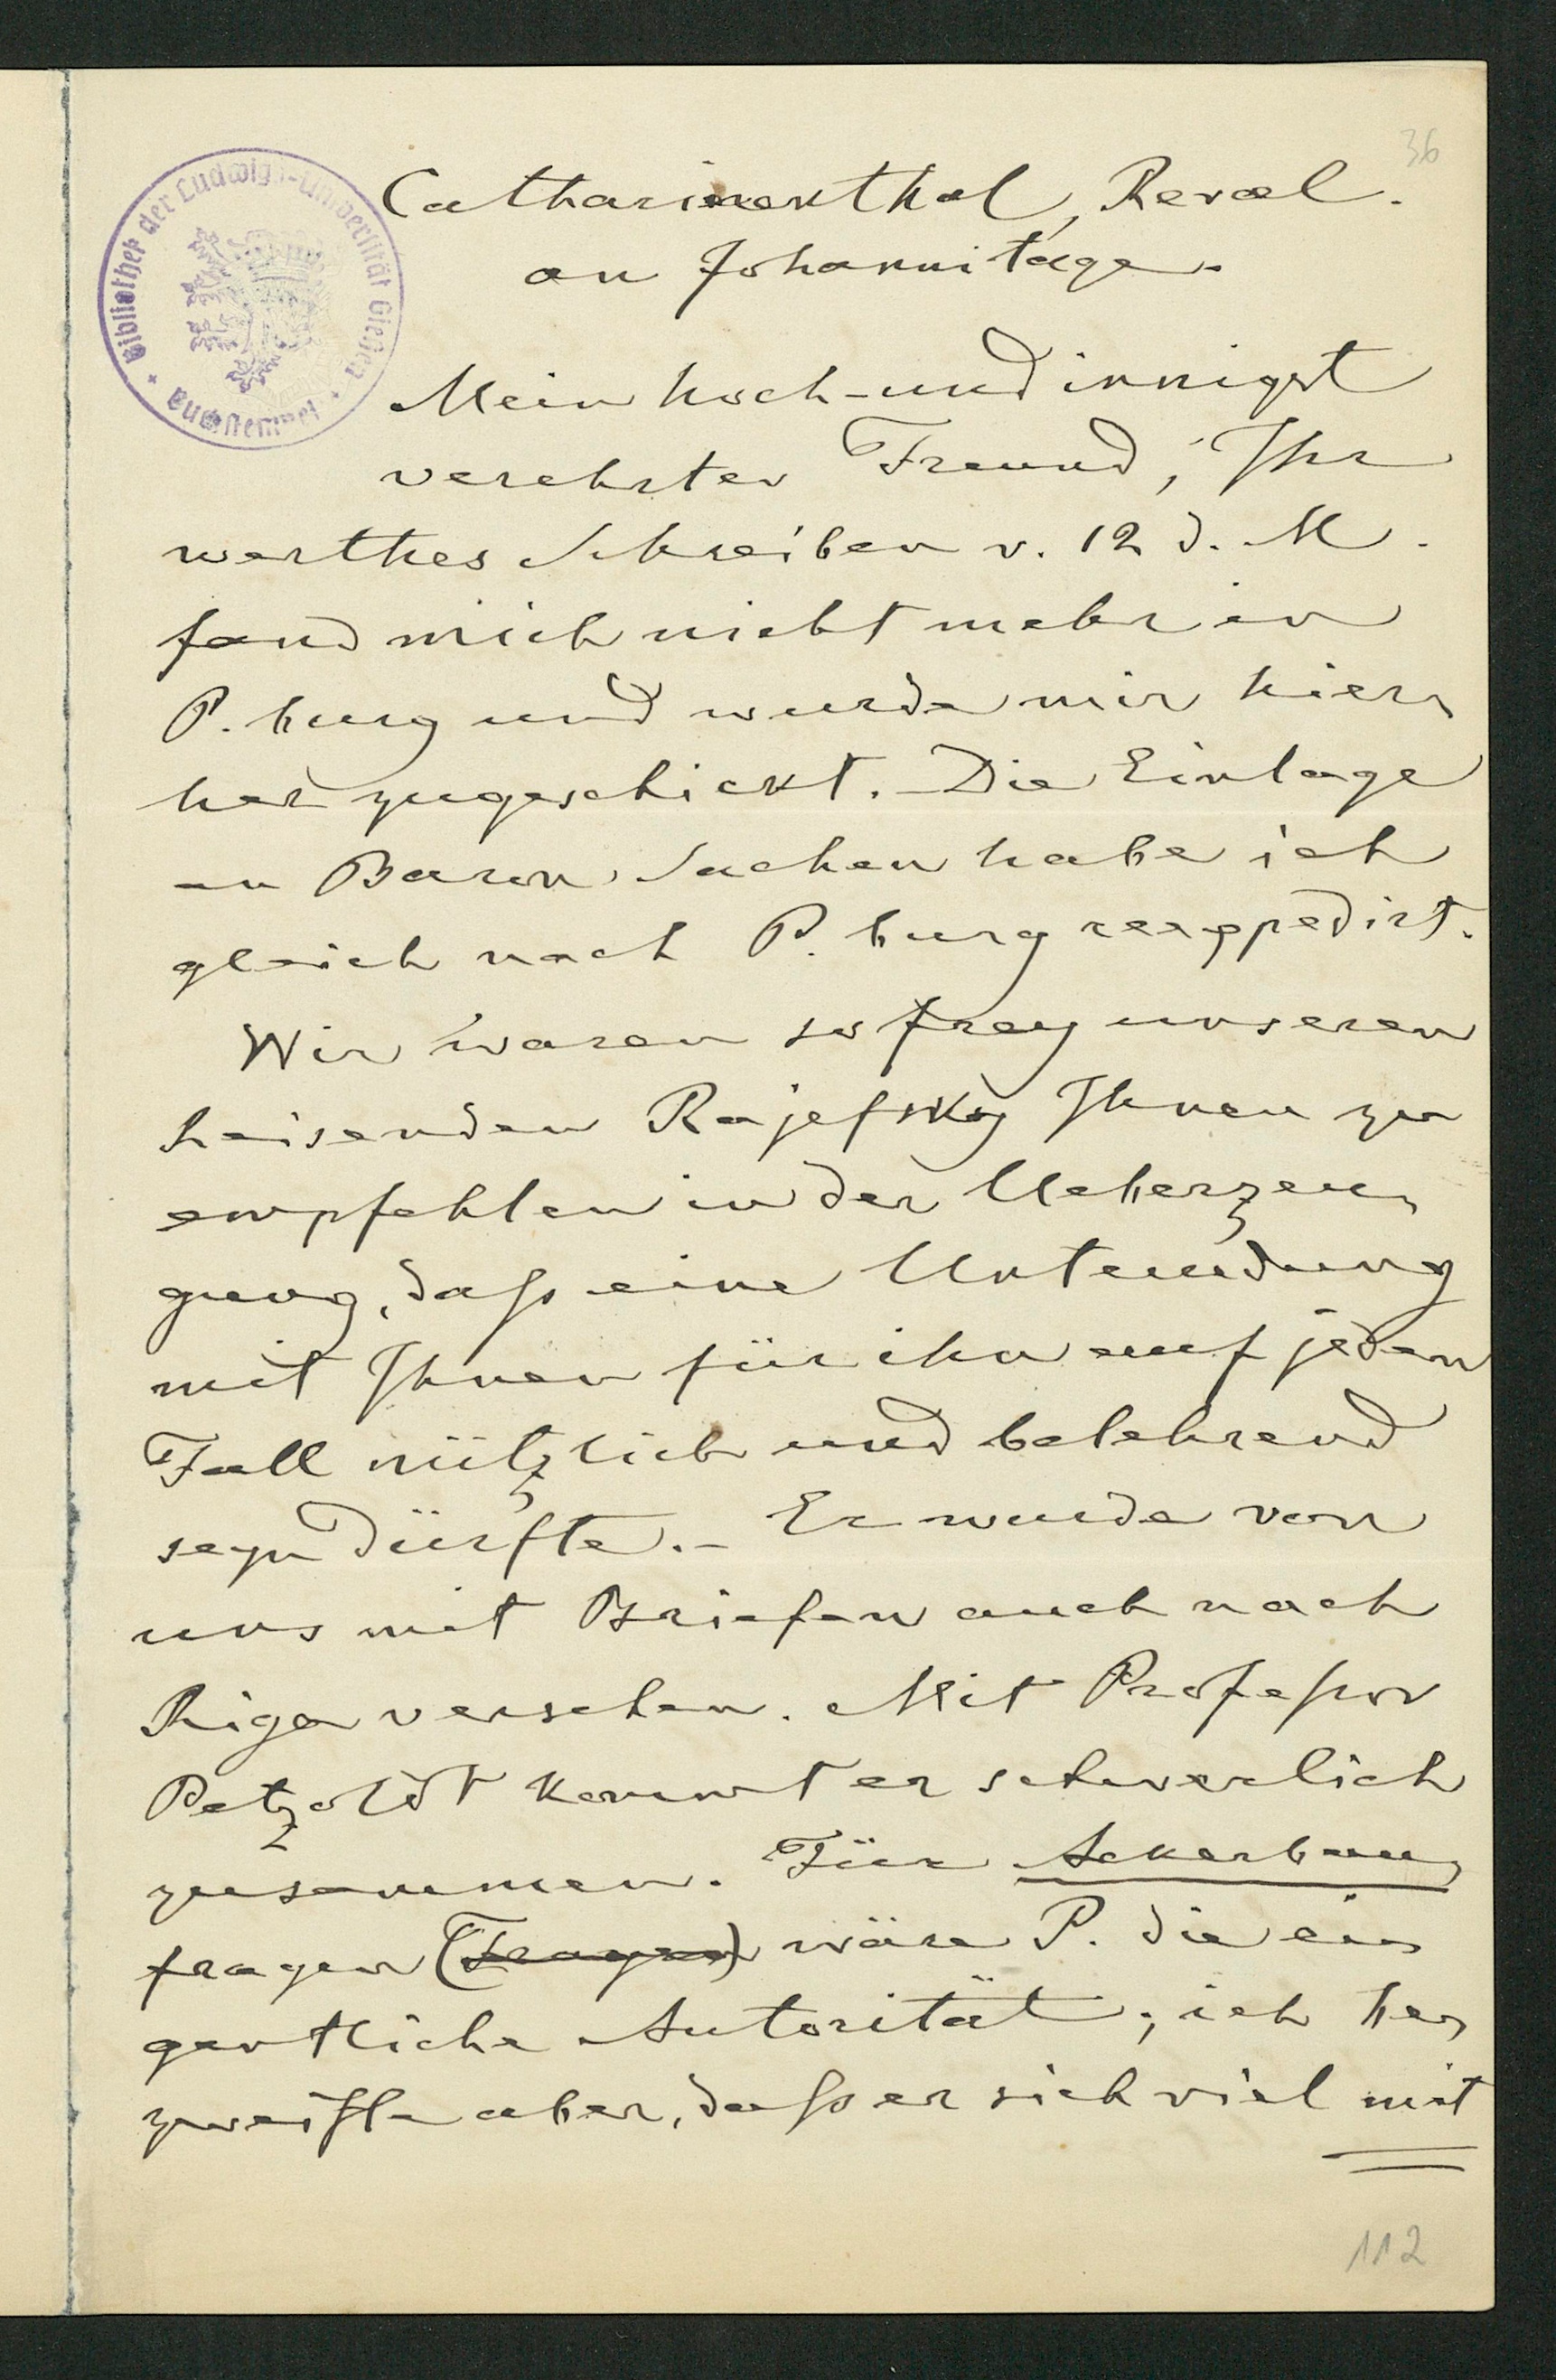 36
Catharinenthal, Reval.
an Johannitage.
Bibliothek der Ludwigs-Universität Gießen
Mein hoch- und innigst
verehrter Freund, Ihr
werthes Schreiben v. 12 d. M.
fand mich nicht mehr in
P.burg und wurde mir hier-
her zugeschickt. Die Einlage
an Baron Sachen habe ich
gleich nach P.burg reexpedirt.
Wir waren so frey unseren
Reisenden Rajefsky Ihnen zu
empfehlen in der Ueberzeu-
gung, daß eine Unterredung
mit Ihnen für ihn auf jeden
Fall nützlich und belehrend
seyn dürfte. – Er wurde von
uns mit Briefen auch nach
Riga versehen. Mit Profeßor
Petzoldt kommt er schwerlich
zusammen. Für Ackerbau-
fragen (Fragen) wäre P. die ei-
gentliche Autorität; ich be-
zweifle aber, daß er sich viel mit
112